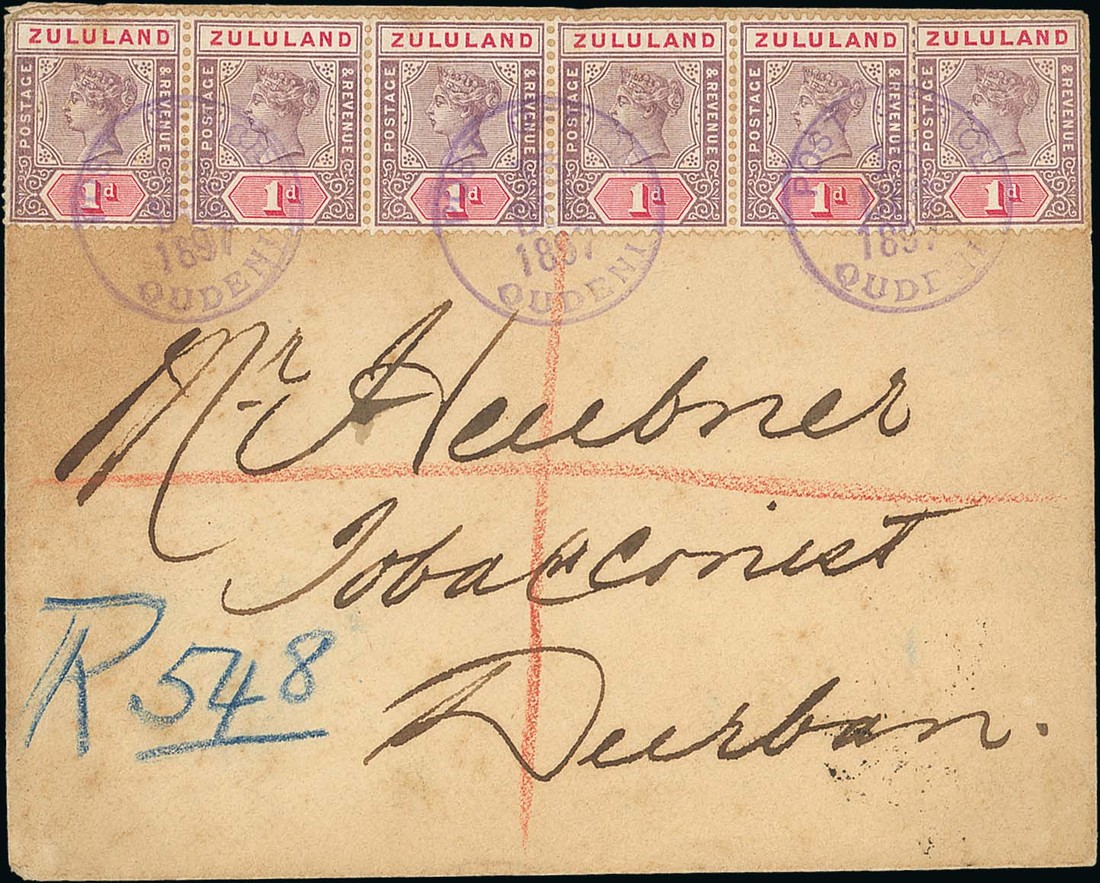 ZULULAND ZULULAND ZULULAND ZULULAND ZULULAND ZULULAND
POSTAGE & REVENUE POSTAGE & REVENUE POSTAGE & REVENUE POSTAGE & REVENUE POSTAGE & REVENUE POSTAGE & REVENUE
1d 1d 1d 1d 1d 1d
POST OFFICE
1897 1897 1897
QUDENI QUDENI QUDENI
Mr Heubner
Tobacconist
Durban.
R 548